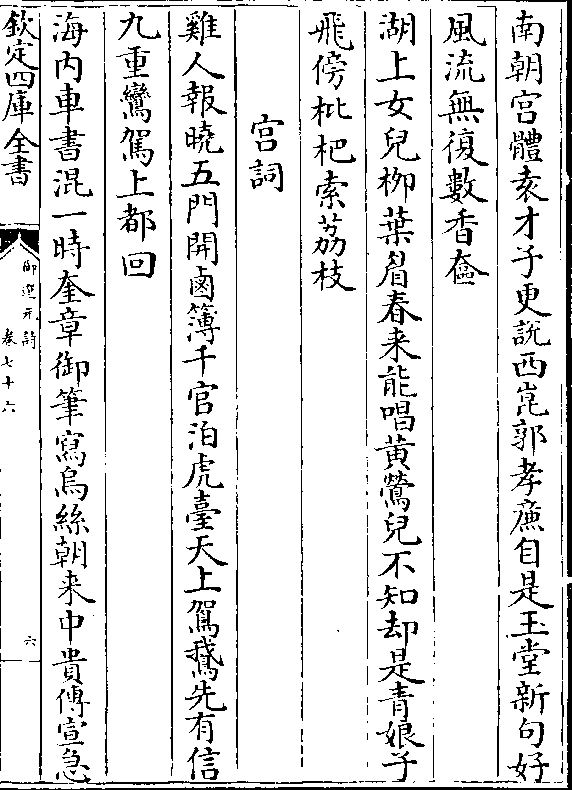 南朝宫體袁才子更説西崑郭孝㢘自是玉堂新句好
風流無復數香奩
湖上女兒栁葉眉春来能唱黄鶯兒不知却是青娘子
飛傍枇杷索荔枝
宫詞
雞人報曉五門開鹵簿千官泊虎臺天上駕鵝先有信
九重鸞駕上都回
海内車書混一時奎章御筆寫烏絲朝来中貴傳宣急
欽定四庫全書
御選元詩
卷七十六
六